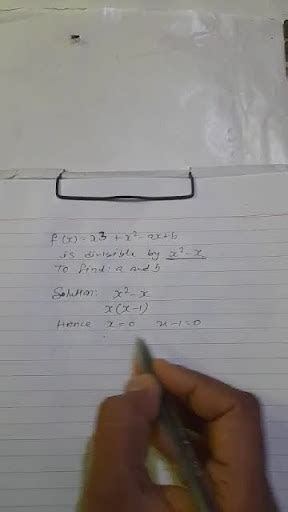 f(x) = x3 + x² - ax + b
is divisible by x² - x
To find : a and b
Solution: x² - x
x(x-1)
Hence x = 0 x-1 = 0